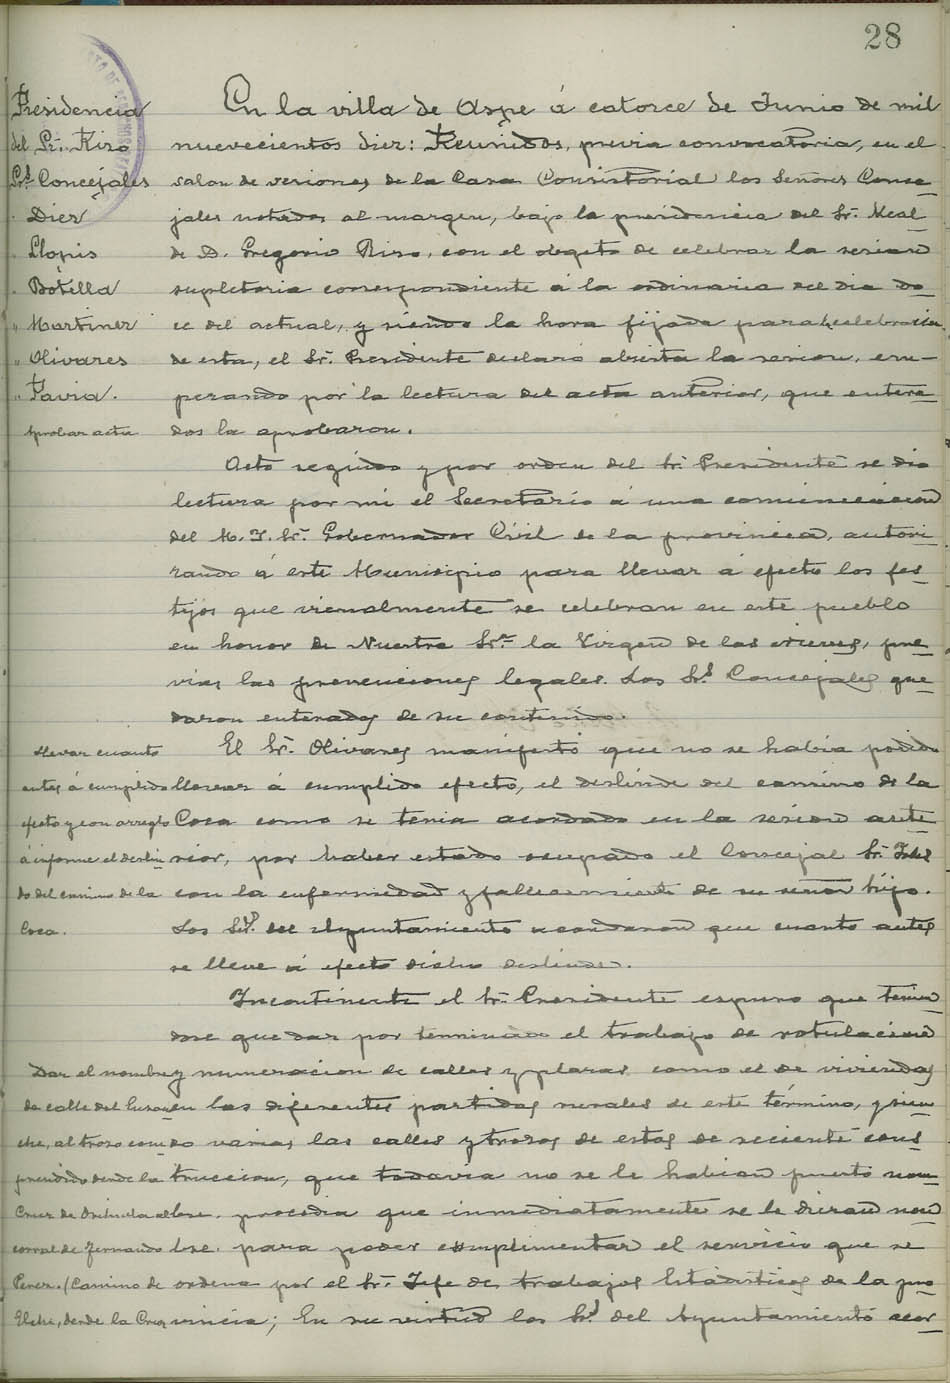 28
Presidencia
del Sr. Rizo
Srs. Concejales
Diez
Llopis
Botella
" Martinez
" Olivares
" Pavia.
Aprobar acta
En la villa de Aspe á catorce de Junio de mil
nuevecientos diez: Reunidos, previa convocatoria, en el
salon de sesiones de la Casa Consistorial los Señores Conce-
jales notados al margen, bajo la presidencia del Sr. Alcal-
de D. Gregorio Rizo, con el obgeto de celebrar la sesion
supletoria correspondiente á la ordinaria del dia do-
ce del actual, y siendo la hora fijada para la celebracion
de esta, el Sr. Presidente declaró abierta la sesion, em-
pezando por la lectura del acta anterior, que entera-
dos la aprobaron.
Acto seguido y por orden del Sr. Presidente se dio
lectura por mi el Secretario á una comunicacion
del M. I. Sr. Gobernador Civil de la provincia, autori-
zando á este Municipio para llevar á efecto los fes-
tijos que vienalmente se celebran en este pueblo
en honor de Nuestra Sra. la Virgen de las Nieves, pre-
vias las prevenciones legales. Los Srs. Concejales que-
daron enterados de su contenido.
Llevar cuanto
antes á cumplido
efecto y con arreglo
á informe el deslin-
do del camino de la
Coca.
El Sr. Olivares manifestó que no se habia podido
llevar á cumplido efecto, el deslinde del camino de la
Coca como se tenia acordado en la sesion ante-
rior, por haber estado ocupado el Concejal Sr.
con la enfermedad y fallecimiento de su señor hijo.
Los Srs. del Ayuntamiento acordaron que cuanto antes
se lleve á efecto dicho deslinde.
Incontinente el Sr. Presidente espuso que tenien-
dose que dar por terminado el trabajo de rotulacion
y numeracion de calles y plazas como el de viviendas
en las diferentes partidas rurales de este término, y sien-
do varias las calles y trozos de estas de reciente cons-
truccion, que todavia no se le habian puesto nom-
bre. procedia que inmediatamente se le dieran nom-
bre. para poder cumplimentar el servicio que se
ordena por el Sr. Jefe de trabajos Estadísticos de la pro-
vincia; En su virtud los Srs. del Ayuntamiento acor-
Dar el nombre
de calle del
che, al trozo com-
prendido desde la
Cruz de Orihuela al
corral de Fernando
Perez. (Camino de
Elche, desde la Cruz